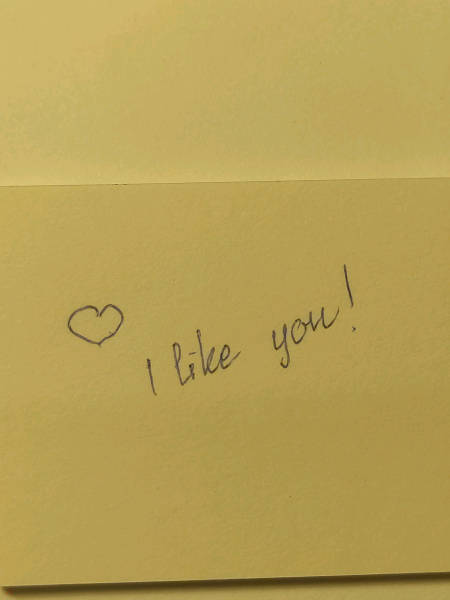 I like you!